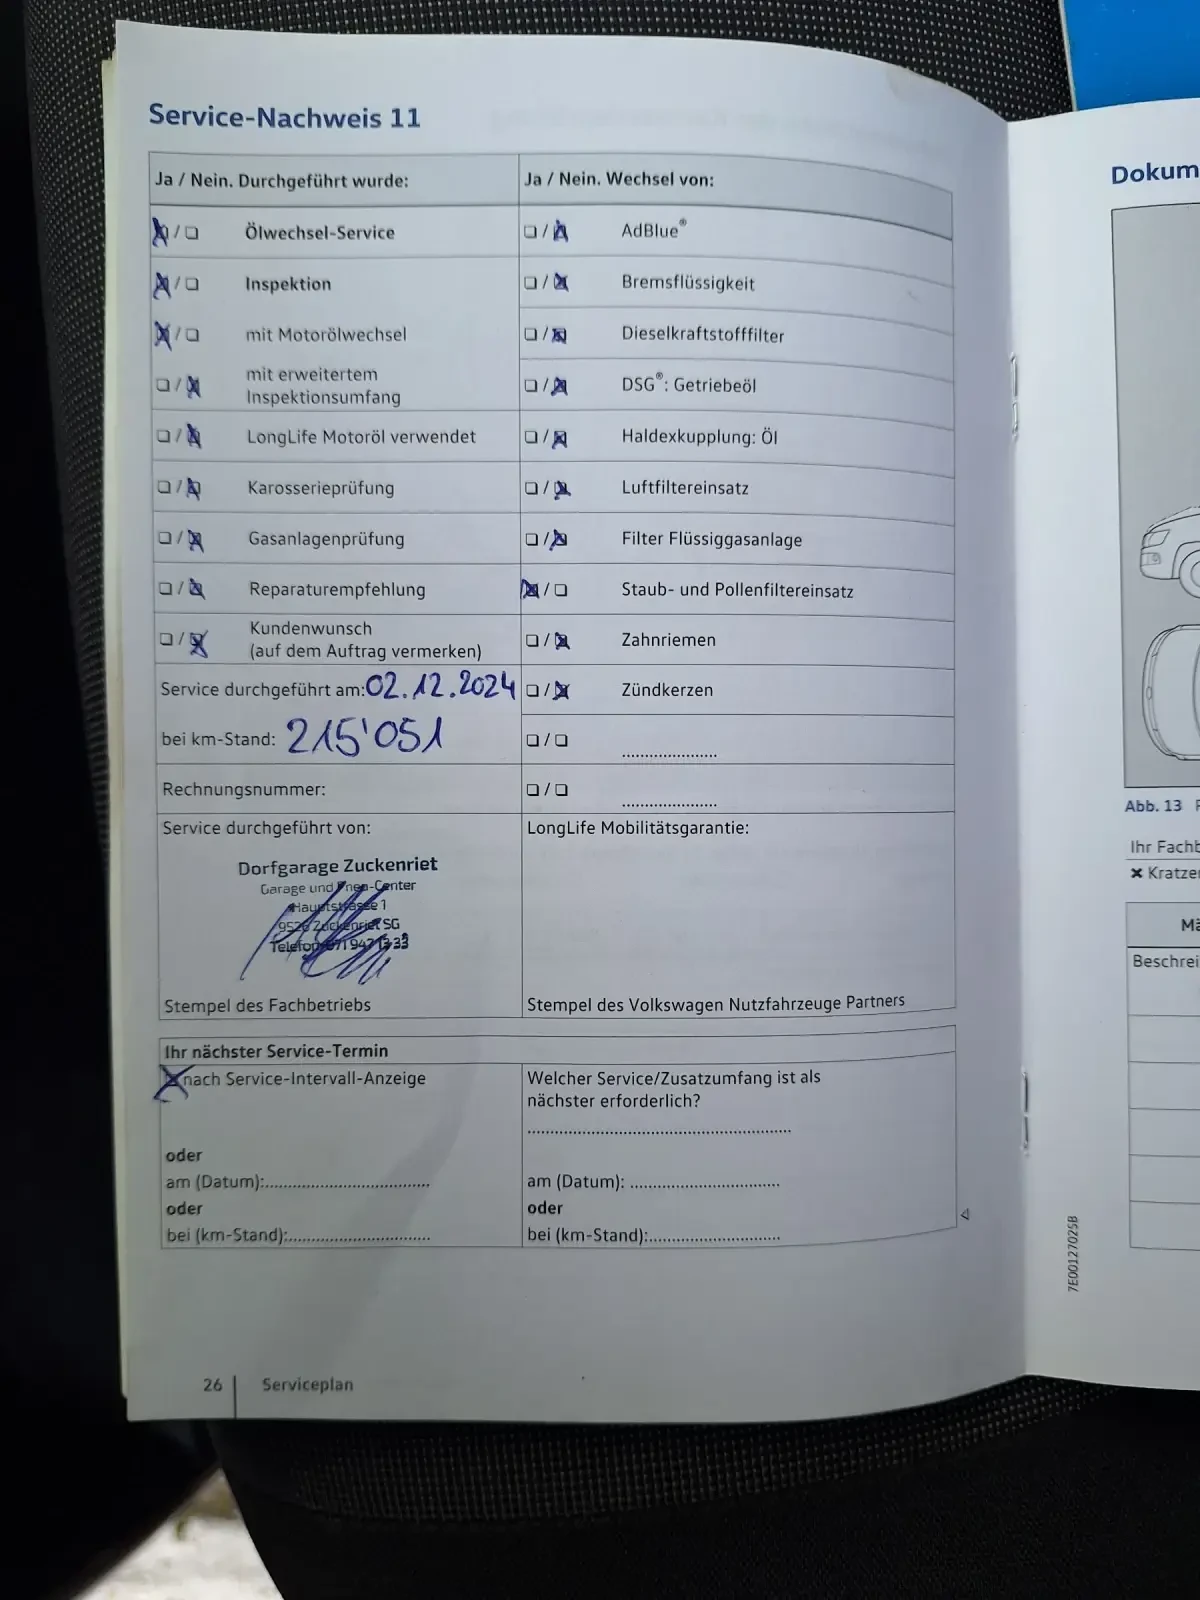 Service-Nachweis 11
Ja / Nein. Durchgeführt wurde:
☒ / ☐ Ölwechsel-Service
☒ / ☐ Inspektion
☒ / ☐ mit Motorölwechsel
☐ / ☒ mit erweitertem
Inspektionsumfang
☐ / ☒ LongLife Motoröl verwendet
☐ / ☒ Karosserieprüfung
☐ / ☒ Gasanlagenprüfung
☐ / ☒ Reparaturempfehlung
☐ / ☒ Kundenwunsch
(auf dem Auftrag vermerken)
Service durchgeführt am: 02.12.2024
bei km-Stand: 215'051
Rechnungsnummer:
Service durchgeführt von:
Dorfgarage Zuckenriet
Garage und Pneu-Center
Hauptstrasse 1
9526 Zuckenriet SG
Telefon 071 947 13 33
Stempel des Fachbetriebs
Ja / Nein. Wechsel von:
☐ / ☒ AdBlue®
☐ / ☒ Bremsflüssigkeit
☐ / ☒ Dieselkraftstofffilter
☐ / ☒ DSG®: Getriebeöl
☐ / ☒ Haldexkupplung: Öl
☐ / ☒ Luftfiltereinsatz
☐ / ☒ Filter Flüssiggasanlage
☒ / ☐ Staub- und Pollenfiltereinsatz
☐ / ☒ Zahnriemen
☐ / ☒ Zündkerzen
☐ / ☐ ......................
☐ / ☐ ......................
LongLife Mobilitätsgarantie:
Stempel des Volkswagen Nutzfahrzeuge Partners
Ihr nächster Service-Termin
☒ nach Service-Intervall-Anzeige
oder
am (Datum):..................................
oder
bei (km-Stand):..............................
Welcher Service/Zusatzumfang ist als
nächster erforderlich?
......................................................
am (Datum): ...............................
oder
bei (km-Stand):...........................
26 Serviceplan
Dokum
Abb. 13
Ihr Fachb
✖ Kratze
Mä
Beschrei
7E00127025B